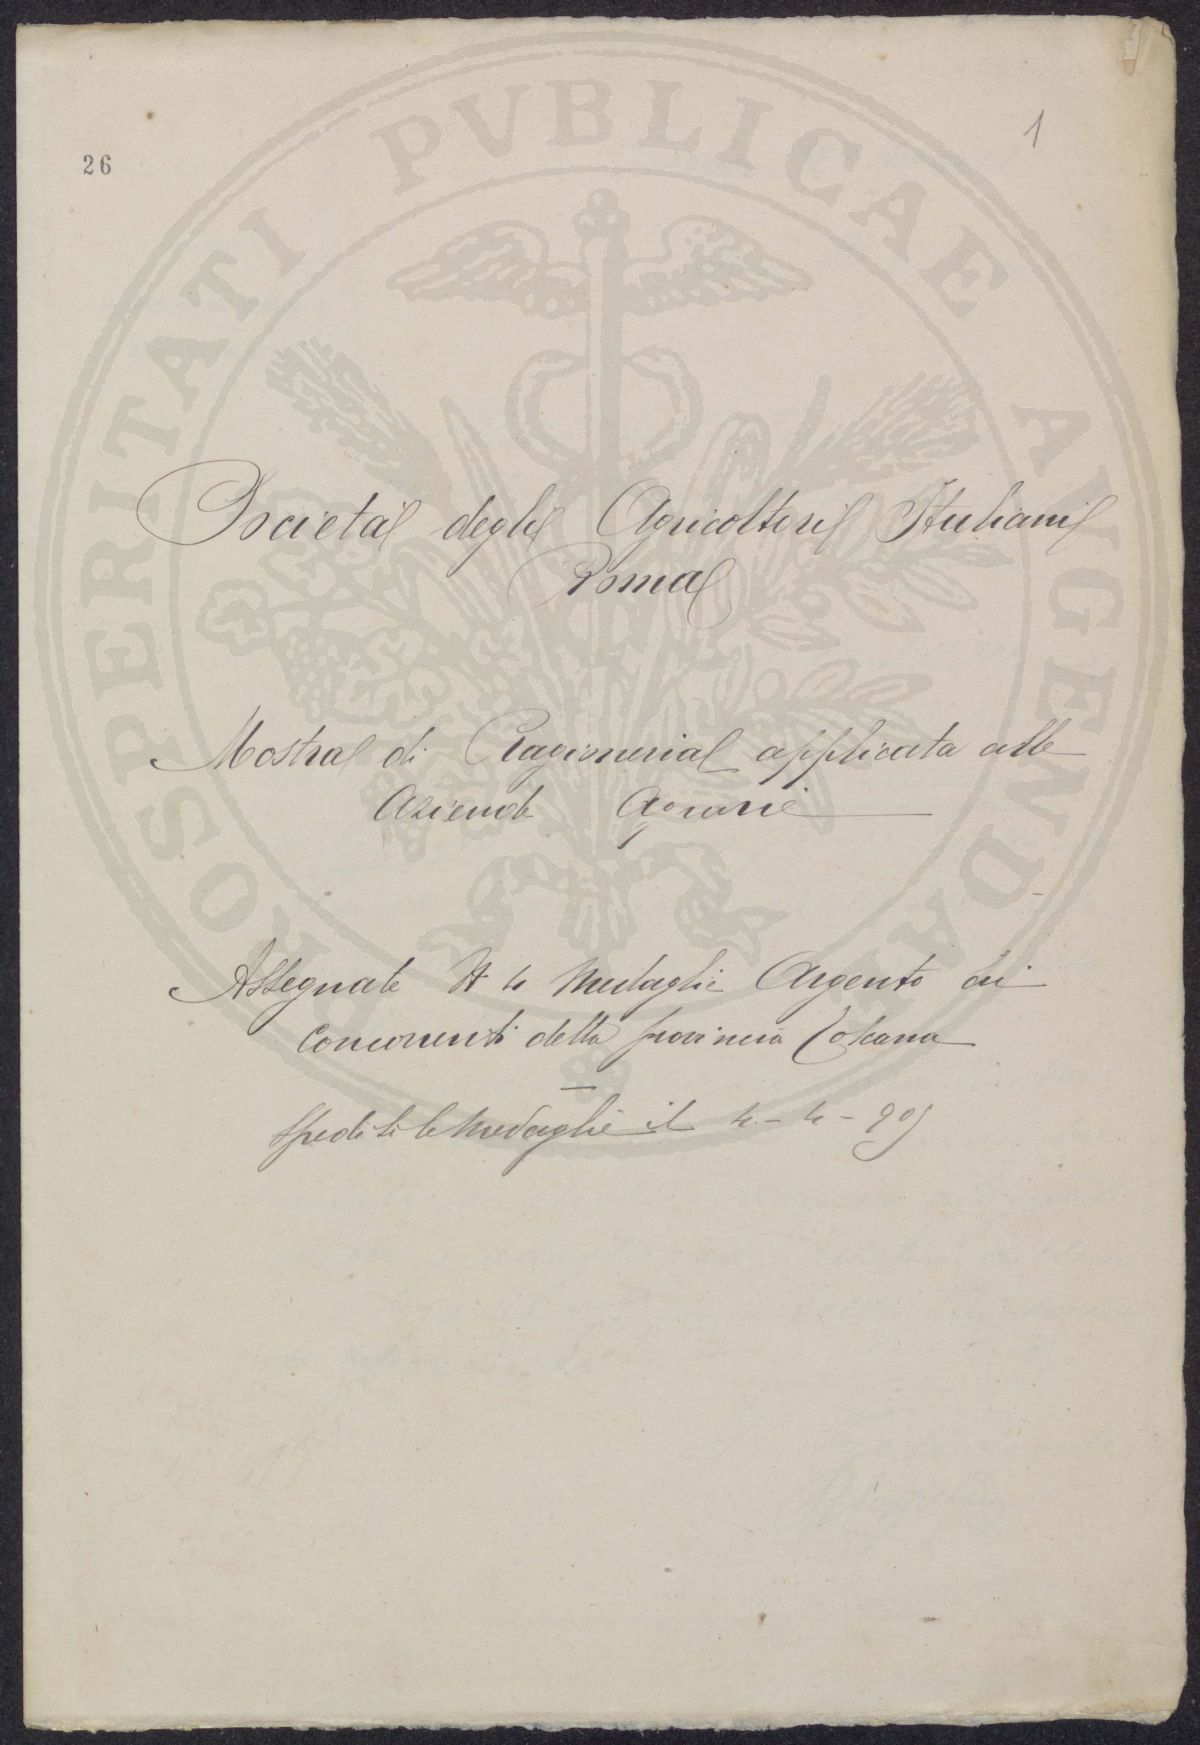 26
1
PROSPERITATI PVBLICAE AVGENDAE
Società degli Agricoltori Italiani
Roma
Mostra di Ragioneria applicata alle
Aziende Agrarie
Assegnate N 4 Medaglie Argento ai
Concorrenti della provincia Toscana
Spedite le Medaglie il 4 - 4 - 905